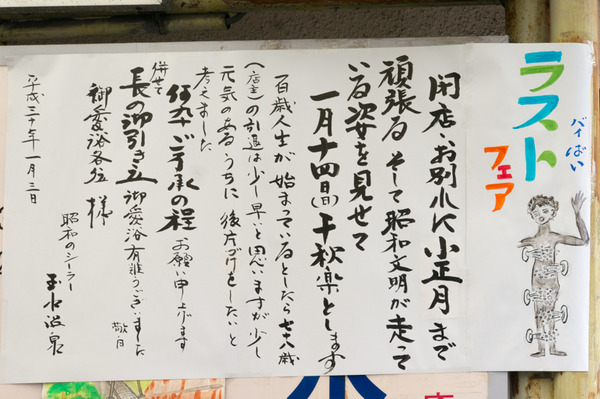 ラスト
バイばい
フェア
閉店・お別れに小正月まで
頑張る そして昭和文明が走って
いる姿を見せて
一月十四日(日)千秋楽とします
百歳人生が始まっているとしたら七十八歳
(店主)の引退は少し早いと思いますが少し
元気のあるうちに後片づけをしたいと
考えました
何卒ご了承の程お願い申上げます
併せて
長の御引き立御愛浴有難うございました
敬白
御愛浴各位様
昭和のシーラー
玉水温泉
平成三十年一月三日